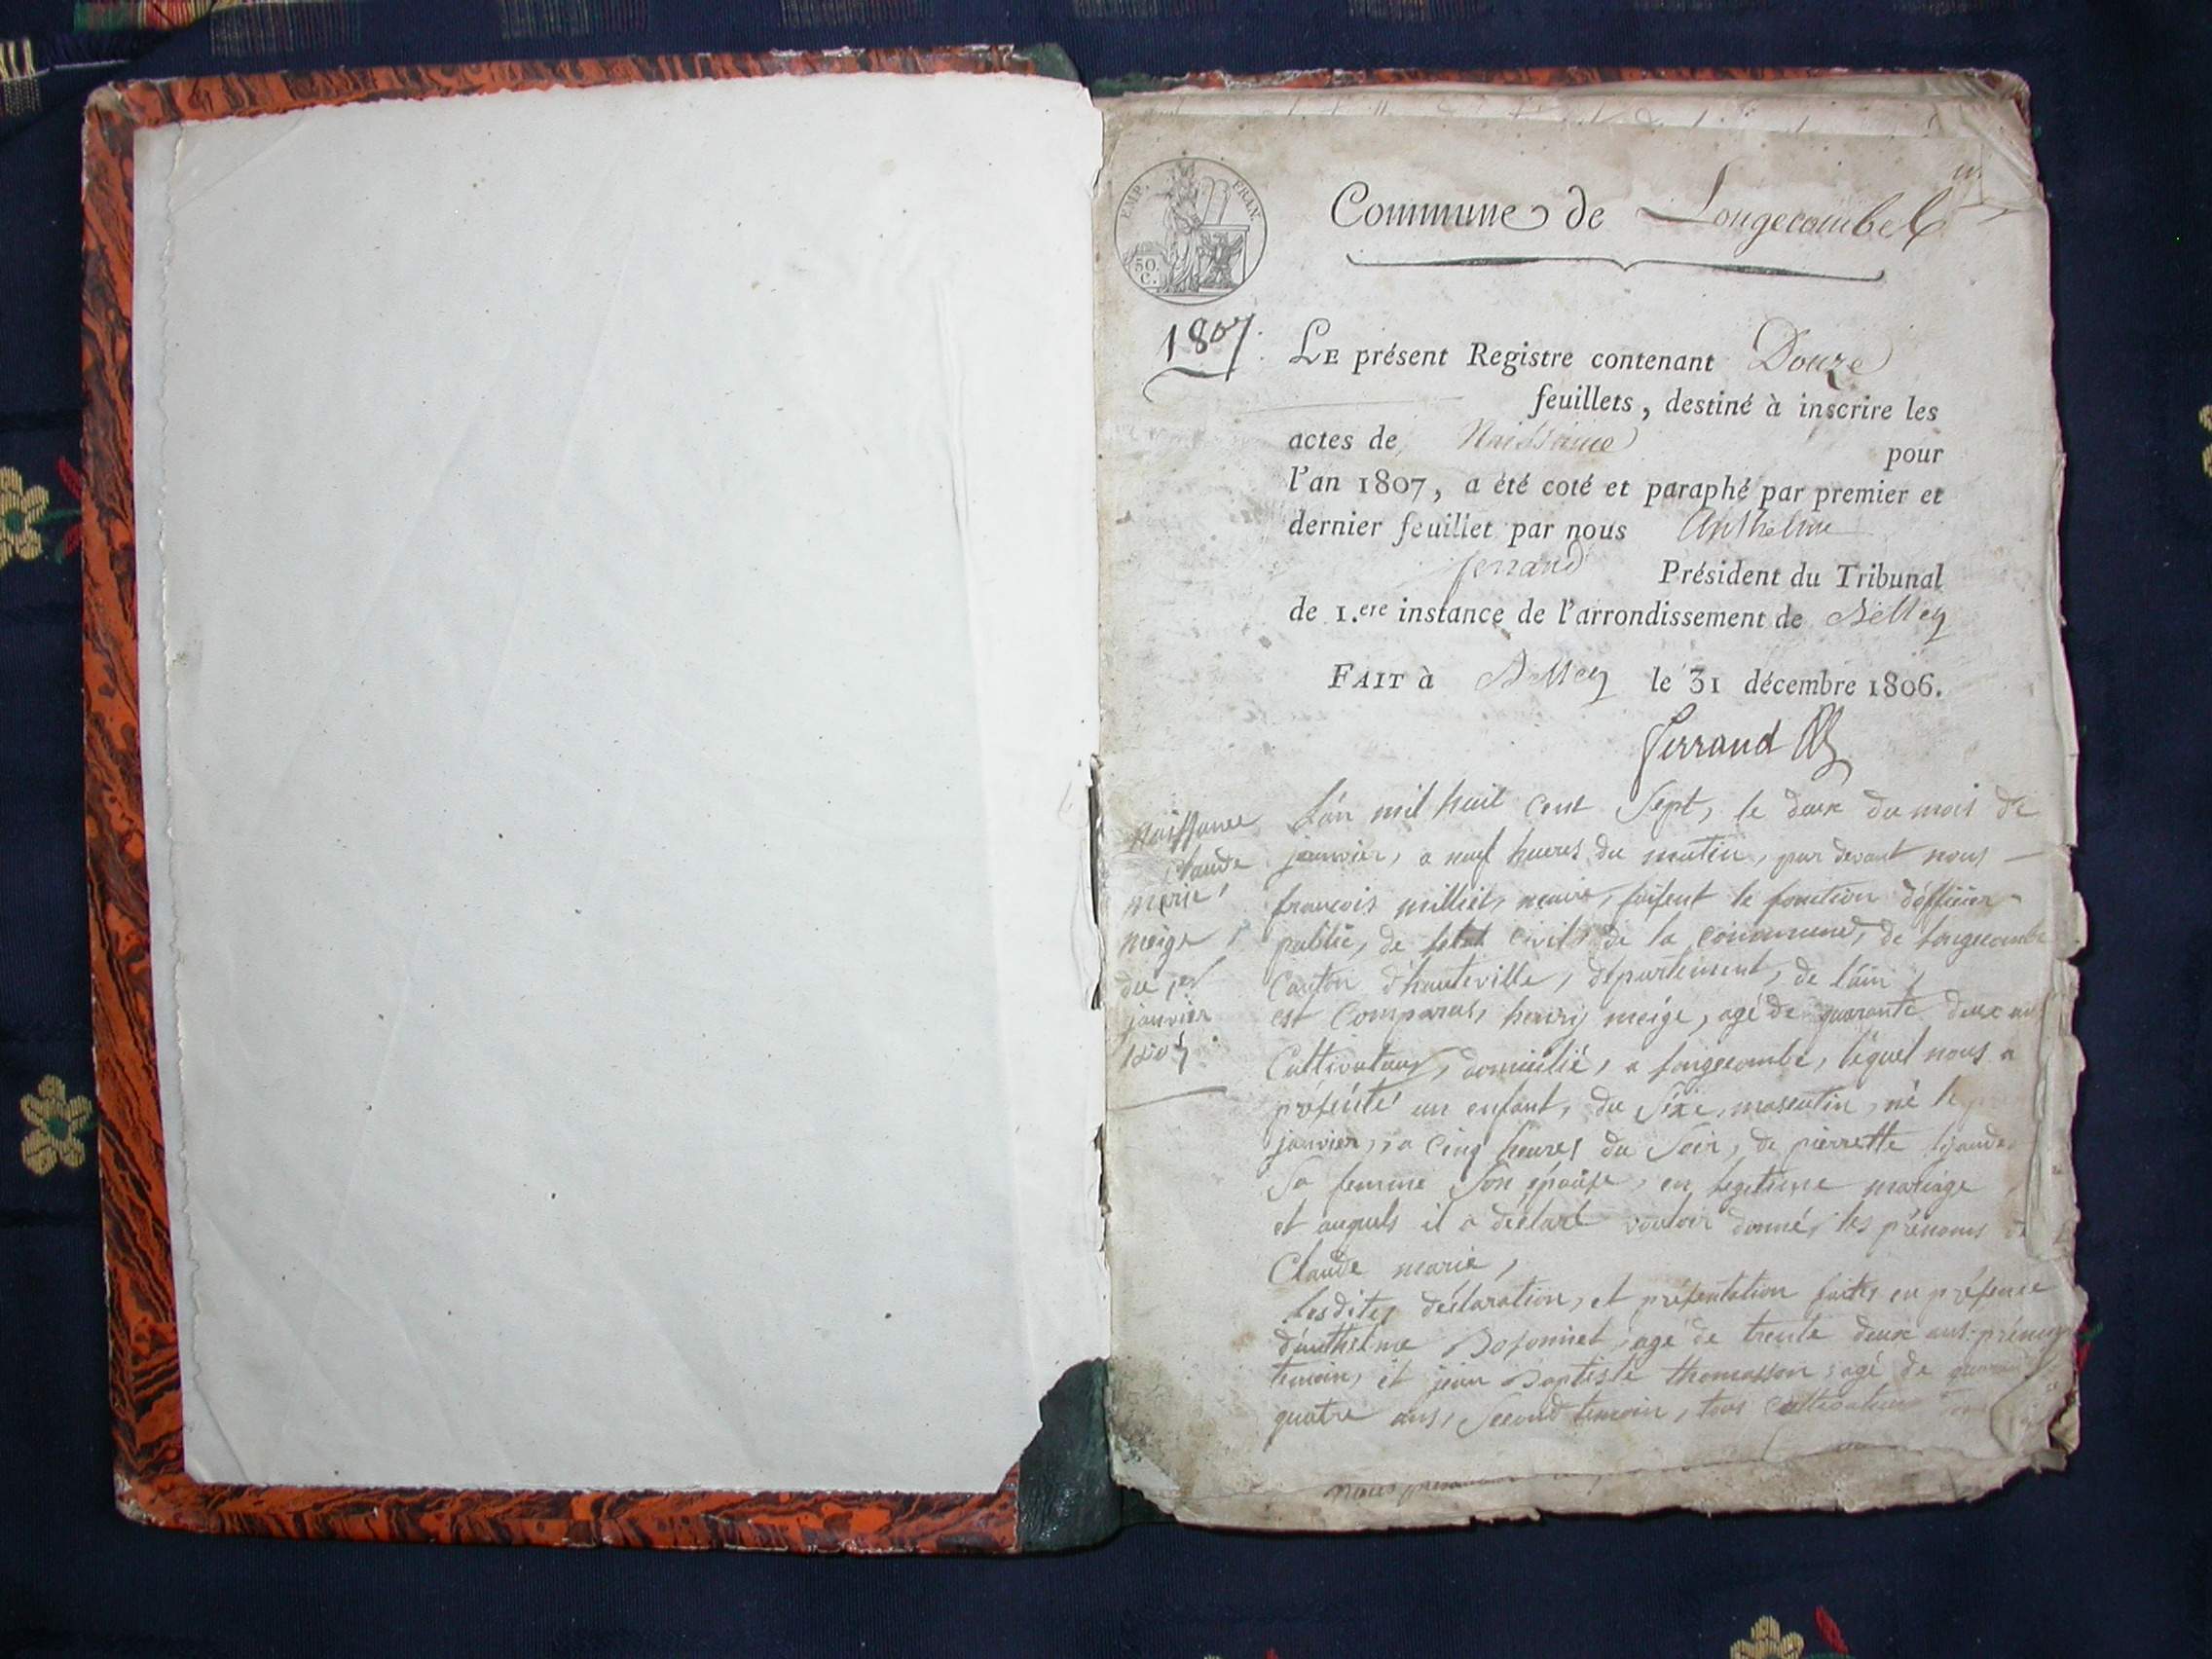 EMP. FRAN.
50. C.
Commune de Longecombe
1807.
LE présent Registre contenant Douze
feuillets, destiné à inscrire les
actes de Naissance pour
l'an 1807, a été coté et paraphé par premier et
dernier feuillet par nous Anthelme
ferrand Président du Tribunal
de 1.ere instance de l'arrondissement de Belley
FAIT à Belley le 31 décembre 1806.
Ferrand
naissance
Claude
marie
meige
du 1er
janvier
1807
L'án mil huit cent Sept, le deux du mois de
janvier, a neuf heures du matin, par devant nous
francois milliet, maire, faisent le fonction d'officier
public, de letat civil, de la commune, de longecombe
Canton d'hauteville, département, de l'ain,
est Comparus, henry meige, agé de quarante deux ans
Cultivateur, domicilié, a longecombe, lequel nous a
présenté un enfant, du Séxe, masculin, né le
janvier, a Cinq heures du Soir, de pierrette
Sa femme Son épouse, en legitime mariage
et auquels il a déclaré vouloir donné, les prénoms de
Claude marie,
lesdites déclaration, et présentation faites en présence
d'anthelme agé de trente deux ans premier
temoin, et jean Baptiste thomasson, agé de
quatre ans, Second temoin, tous cultivateur
nous